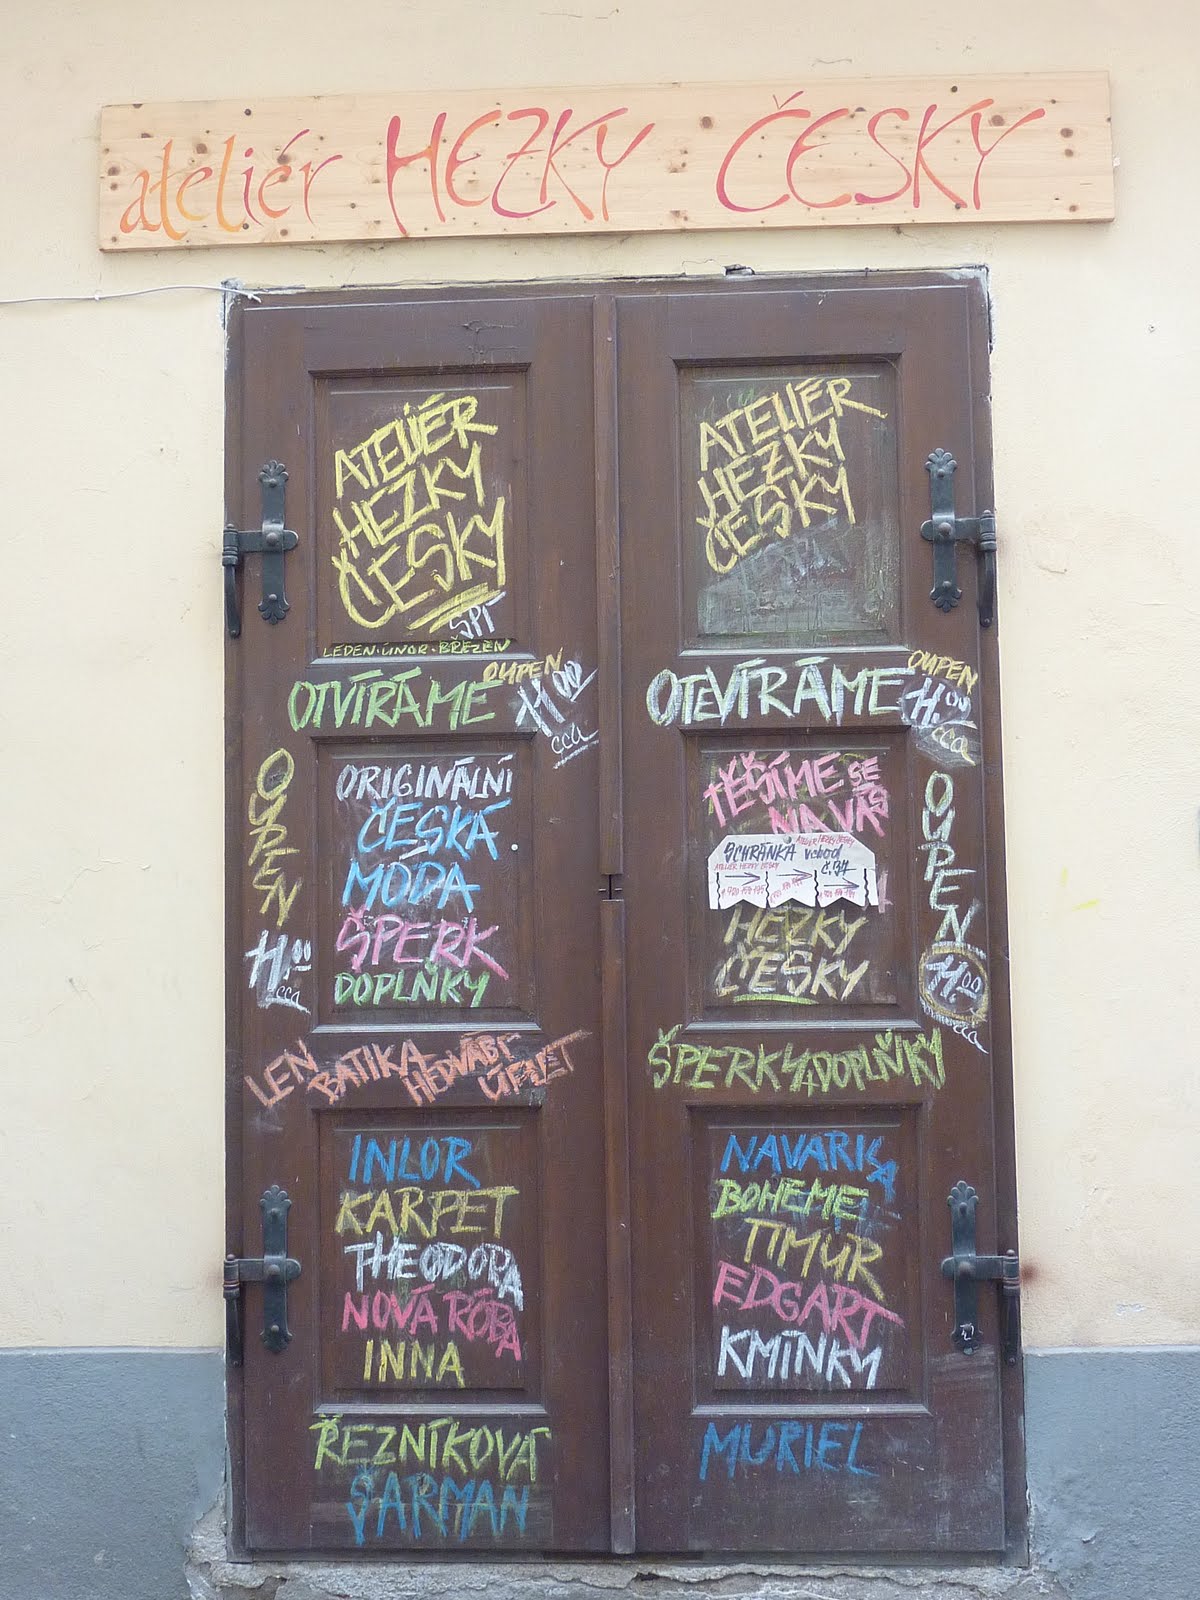 ateliér HEZKY ČESKY
ATELIÉR
HEZKY
ČESKY
SPÍ
LEDEN·ÚNOR·BŘEZEN
OTVÍRÁME OUPEN 11.00
cca
OUPEN
11.00
cca
ORIGINÁLNÍ
ČESKÁ
MÓDA
ŠPERK
DOPLŇKY
LEN BATIKA HEDVÁBÍ ÚPLET
INLOR
KARPET
THEODORA
NOVÁ RÓBA
INNA
ŘEZNÍKOVÁ
ŠARMAN
ATELIÉR
HEZKY
ČESKY
OTEVÍRÁME OUPEN 11.00
cca
TĚŠÍME SE
NA VÁS
ATELIER HEZKY ČESKY
SCHRÁNKA vchod
ATELIER HEZKY ČESKY
HEZKY
ČESKY
OUPEN
11.00
cca
ŠPERKY A DOPLŇKY
NAVARISA
BOHEME
TIMUR
EDGART
KMÍNKY
MURIEL